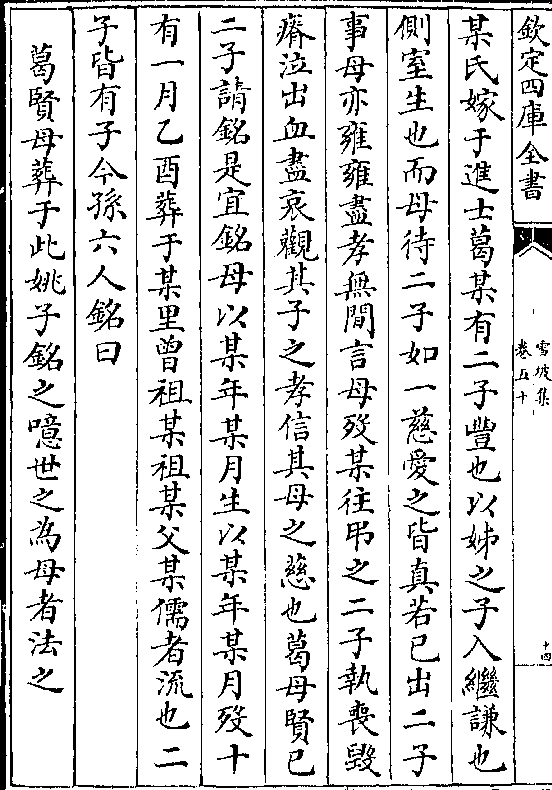 欽定四庫全書
雪坡集
卷五十
十四
某氏嫁于進士葛某有二子豐也以姊之子入繼謙也
側室生也而母待二子如一慈愛之皆真若已出二子
事母亦雍雍盡孝無間言母殁某往弔之二子執喪毁
瘠泣出血盡哀觀其子之孝信其母之慈也葛母賢已
二子請銘是宜銘母以某年某月生以某年某月殁十
有一月乙酉葬于某里曾祖某祖某父某儒者流也二
子皆有子今孫六人銘曰
葛賢母葬于此姚子銘之噫世之為母者法之